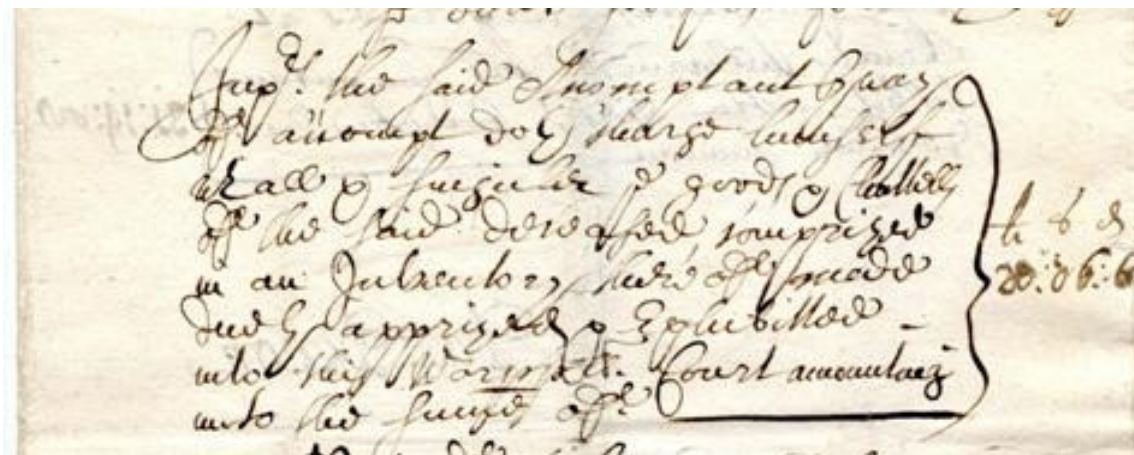 Imp<sup>rs</sup> the said Accomptant by way
of accompt doth charge himself
w<sup>th</sup> all & singuler ye goods & Chattells
of the said deceased comprized
in an Inventory thereof made
duely apprized & Exhibitted
into this Wor<sup>ll</sup> Court amounting
unto the summe of
li s d
20: 06: 6